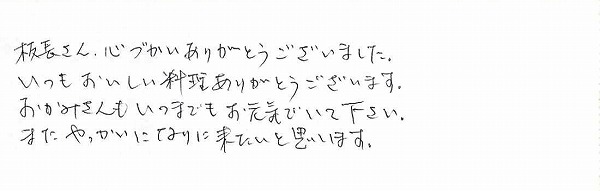 板長さん、心づかいありがとうございました。
いつもおいしい料理ありがとうございます。
おかみさんもいつまでもお元気でいて下さい。
またやっかいになりに来たいと思います。